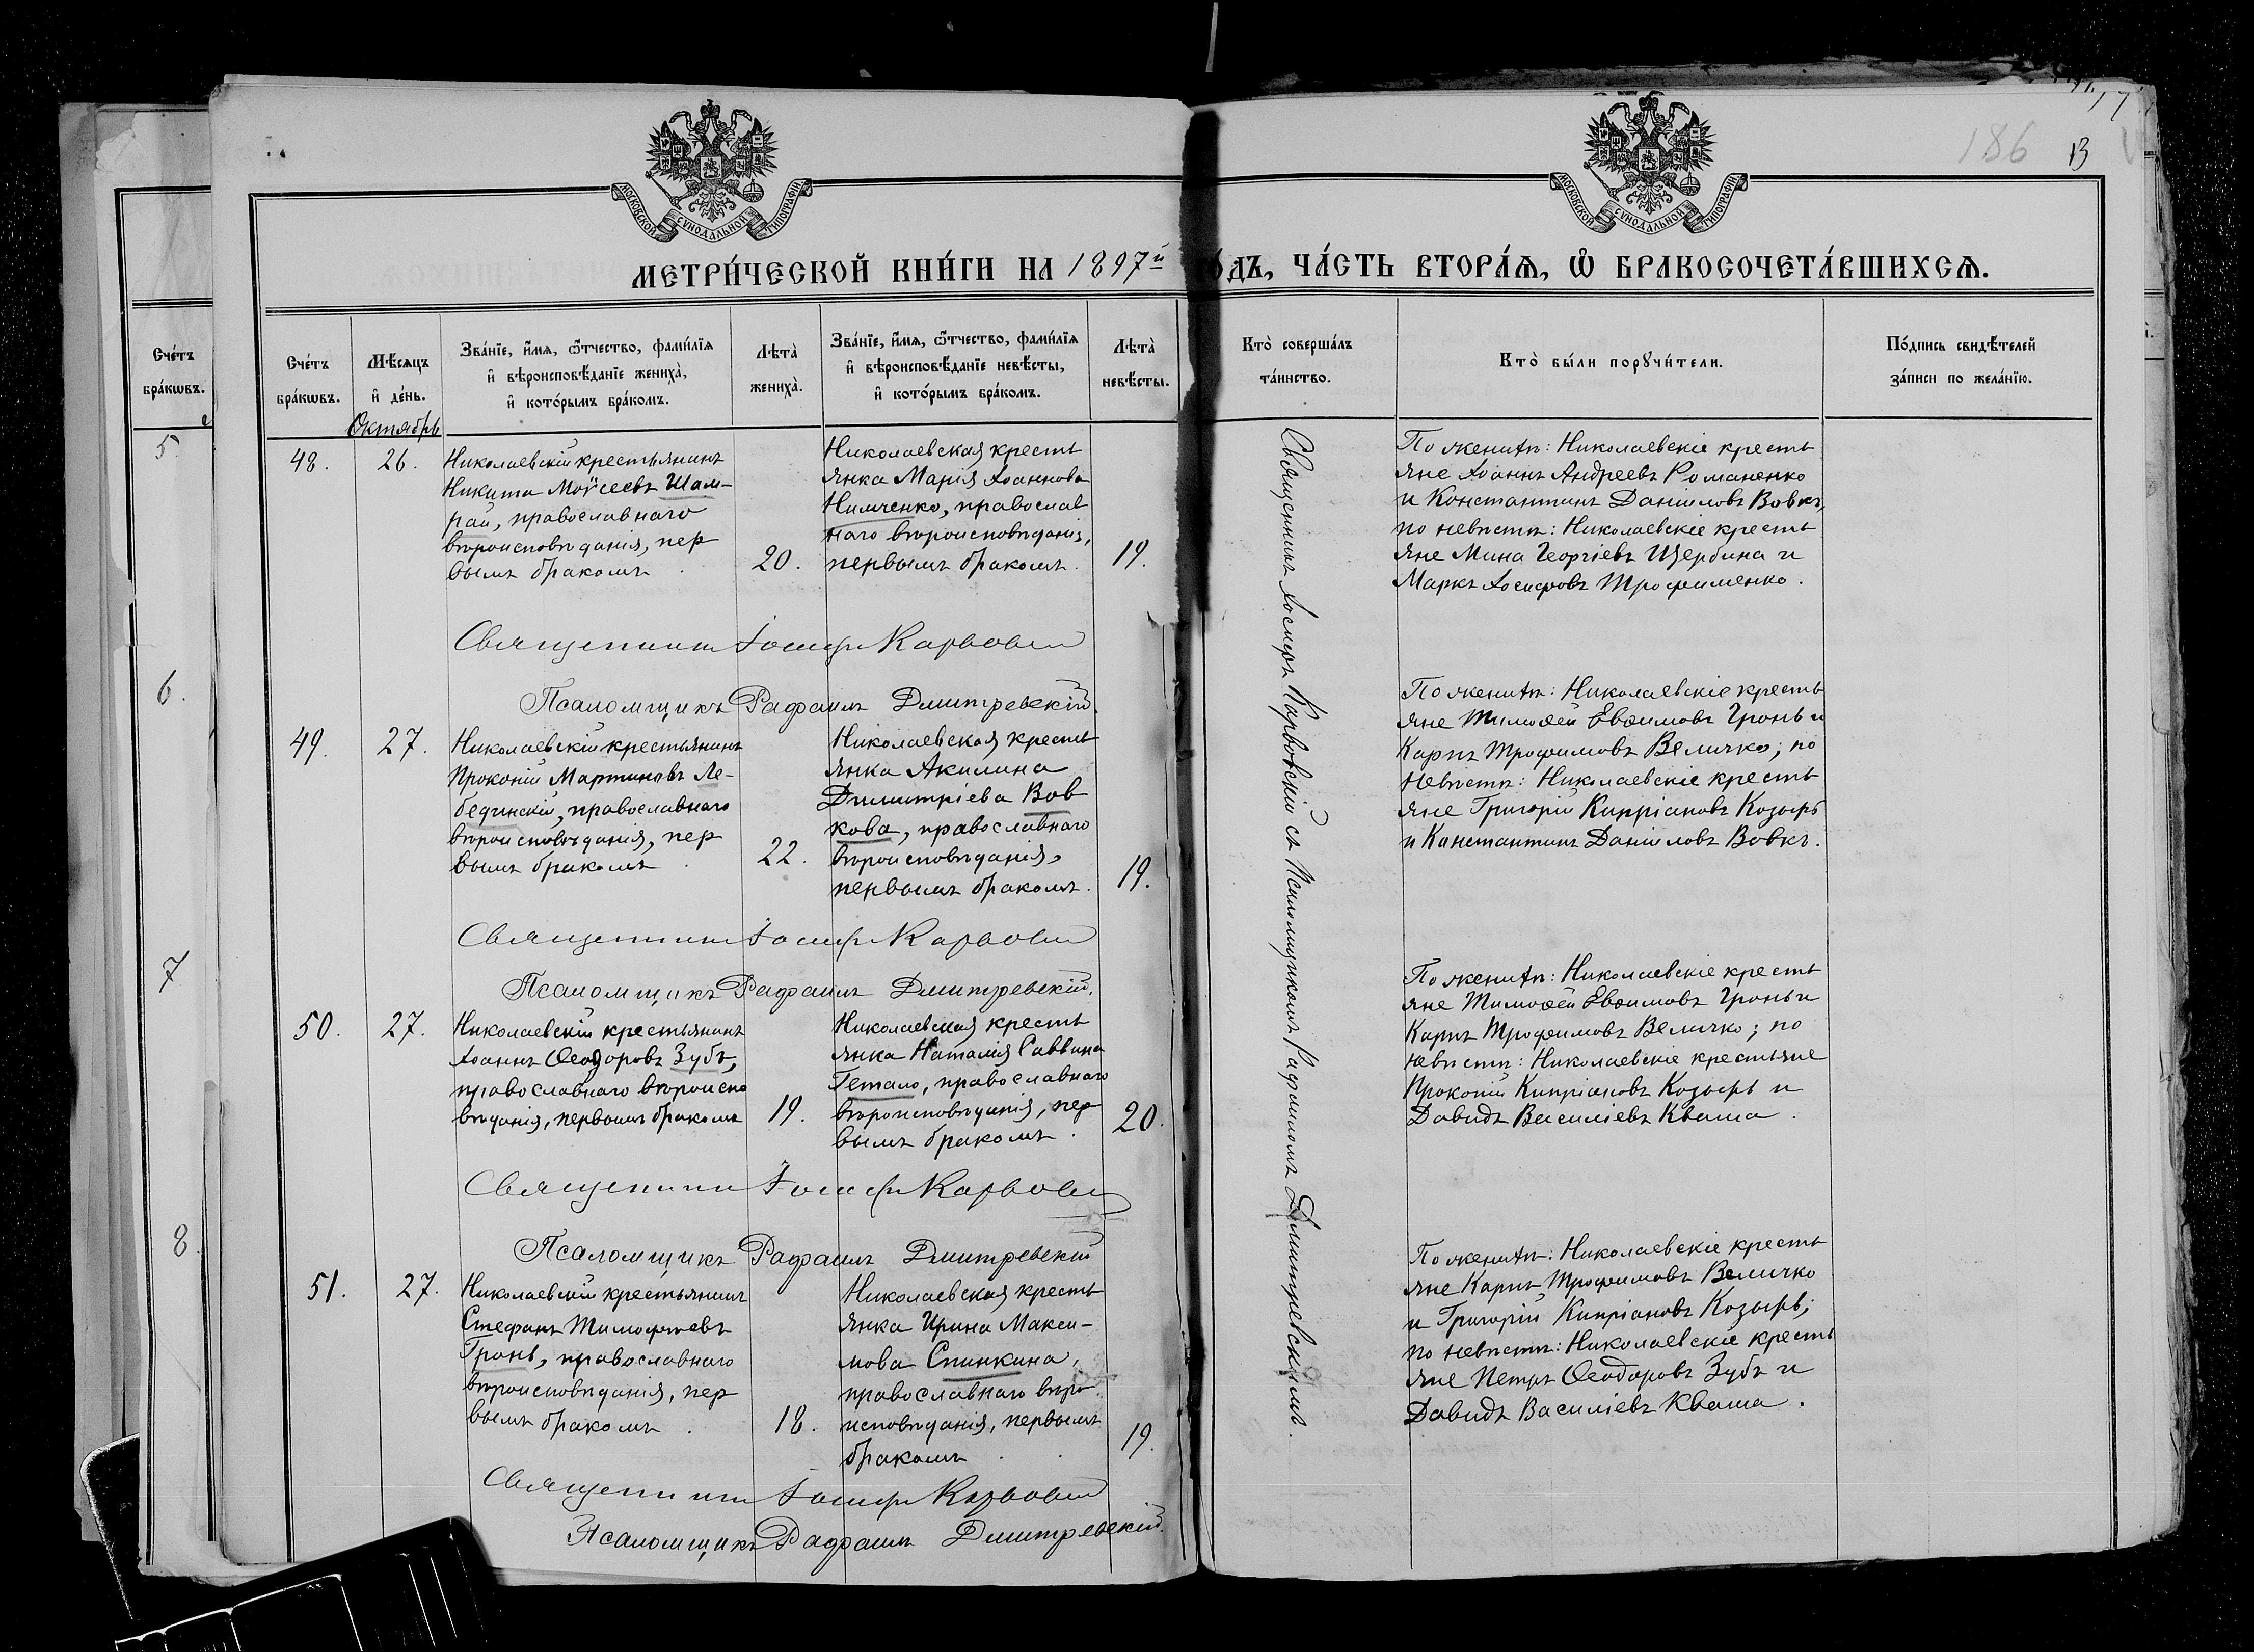 МОСКОВСКОЙ СѴНОДАЛЬНОЙ ТИПОГРАФІИ
МОСКОВСКОЙ СѴНОДАЛЬНОЙ ТИПОГРАФІИ
186
13
МЕТРИ́ЧЕСКОЙ КНИ́ГИ НА 1897й
ДЪ, ЧА́СТЬ ВТОРА́Ѧ, Ѽ БРАКОСОЧЕТА́ВШИХСѦ.
Сче́тъ бра́кѡвъ.
5
6.
7
8.
Сче́тъ бра́кѡвъ.
Мѣ́сяцъ и де́нь.
Зва́нїе, и҆́мѧ, ѻ҆́тчество, фами́лїѧ и҆ вѣроисповѣ́данїе жениха̀, и҆ кото́рымъ бра́комъ.
Лѣта̀ жениха̀.
Зва́нїе, и҆́мѧ, ѻ҆́тчество, фами́лїѧ и҆ вѣроисповѣ́данїе невѣ́сты, и҆ кото́рымъ бра́комъ.
Лѣта̀ невѣ́сты.
Кто̀ соверша́лъ та́инство.
Кто̀ бы́ли порꙋчи́тели.
По́дпись свидѣ́телей за́писи по жела́нїю.
Октябрь
48.
26.
Николаевскій крестьянинъ
Никита Моѵсеевъ Шам-
рай, православнаго
вѣроисповѣданія, пер
вымъ бракомъ.
20.
Николаевская кресть
янка Марія Іоаннова
Нимченко, православ
наго вѣроисповѣданія,
первымъ бракомъ.
19.
По женихѣ: Николаевскіе кресть
яне Іоаннъ Андреевъ Романенко
и Константинъ Даніиловъ Вовкъ,
по невѣстѣ: Николаевскіе кресть
яне Мина Георгіевъ Щербина и
Маркъ Іосифовъ Трофименко.
Священникъ Іосифъ Карвовскій
Псаломщикъ Рафаилъ Дмитревскій.
49.
27.
Николаевскій крестьянинъ
Прокопій Мартиновъ Ле-
бединскій, православнаго
вѣроисповѣданія, пер
вымъ бракомъ.
22.
Николаевская кресть
янка Акилина
Димитріева Вов
кова, православнаго
вѣроисповѣданія,
первымъ бракомъ.
19.
По женихѣ: Николаевскіе кресть
яне Тимоѳей Евѳимовъ Гронь и
Карпъ Трофимовъ Величко; по
невѣстѣ: Николаевскіе кресть
яне Григорій Кипріановъ Козырь
и Константинъ Даніиловъ Вовкъ.
Священникъ Іосифъ Карвовскій
Псаломщикъ Рафаилъ Дмитревскій.
50.
27.
Николаевскій крестьянинъ
Іоаннъ Ѳеодоровъ Зубъ,
православнаго вѣроиспо
вѣданія, первымъ бракомъ
19.
Николаевская кресть
янка Наталія Саввина
Гетало, православнаго
вѣроисповѣданія, пер
вымъ бракомъ.
20.
По женихѣ: Николаевскіе кресть
яне Тимоѳей Евѳимовъ Гронь и
Карпъ Трофимовъ Величко; по
невѣстѣ: Николаевскіе крестьяне
Прокопій Кипріановъ Козырь и
Давидъ Василіевъ Кваша.
Священникъ Іосифъ Карвовскій
Псаломщикъ Рафаилъ Дмитревскій
51.
27.
Николаевскій крестьянинъ
Стефанъ Тимофеевъ
Гронь, православнаго
вѣроисповѣданія, пер
вымъ бракомъ.
18.
Николаевская кресть
янка Ирина Макси-
мова Спинкина,
православнаго вѣро-
исповѣданія, первымъ
бракомъ.
19.
По женихѣ: Николаевскіе кресть
яне Карпъ Трофимовъ Величко
и Григорій Кипріановъ Козырь;
по невѣстѣ: Николаевскіе кресть
яне Петръ Ѳеодоровъ Зубъ и
Давидъ Василіевъ Кваша.
Священникъ Іосифъ Карвовскій
Псаломщикъ Рафаилъ Дмитревскій.
Священникъ Іосифъ Карвовскій съ Псаломщикомъ Рафаиломъ Дмитревскимъ.